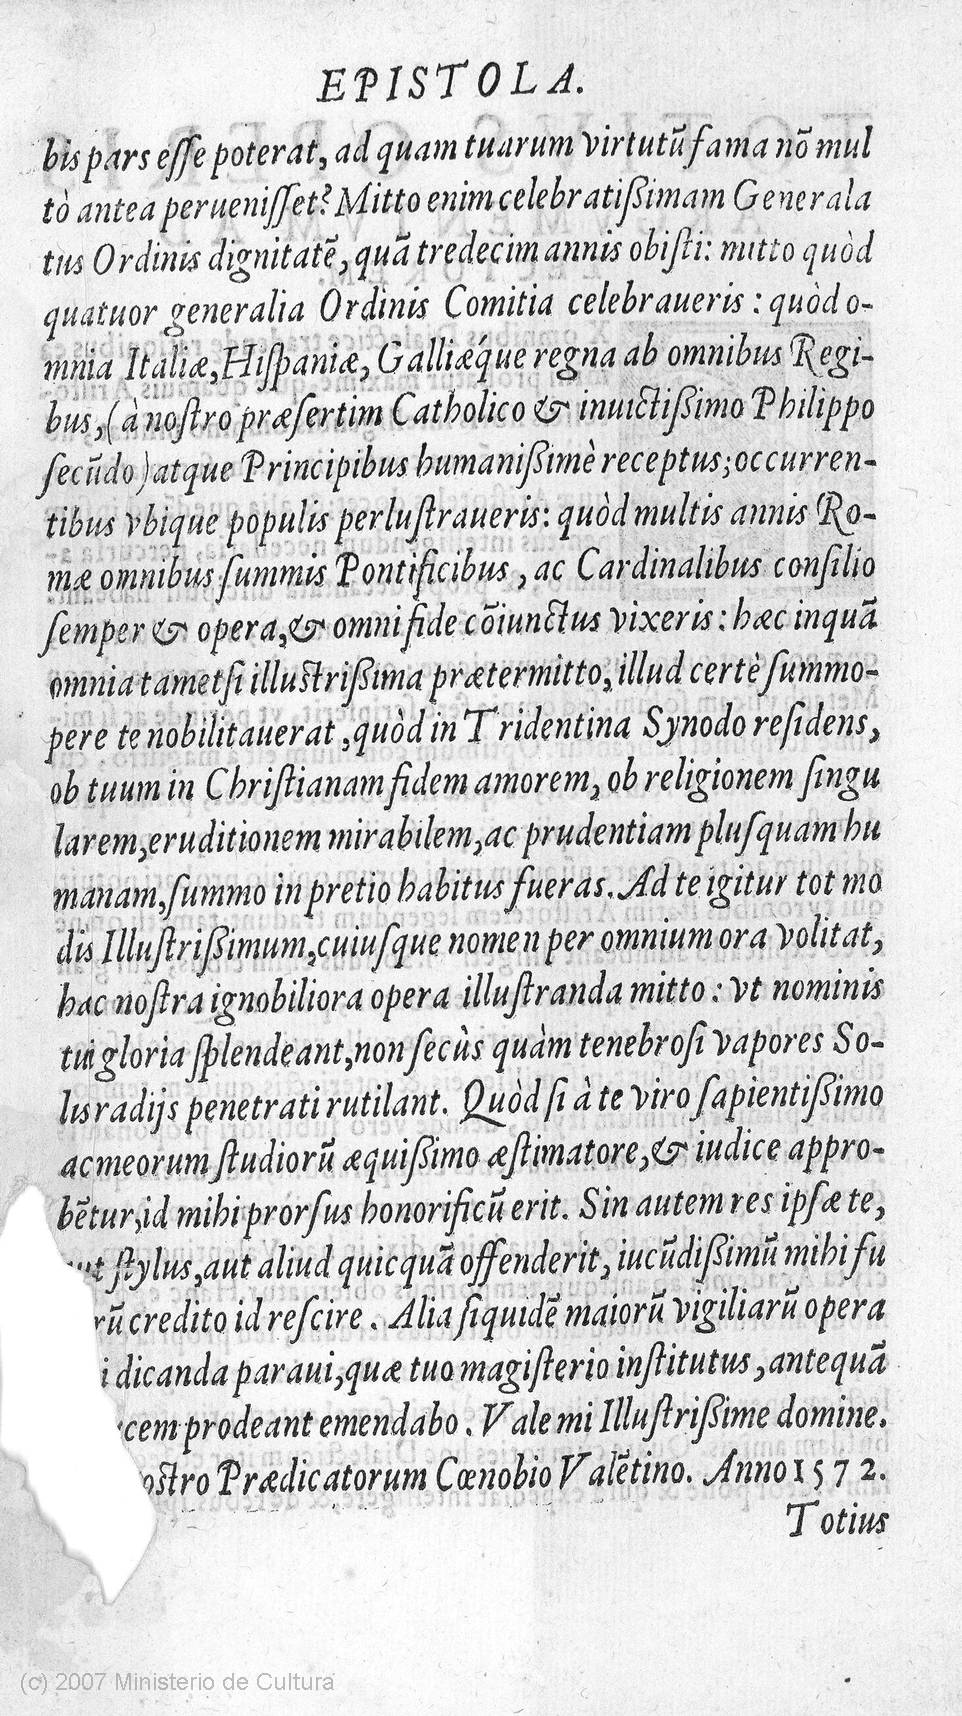 EPISTOLA.
bis pars eſſe poterat, ad quam tuarum virtutū fama nō mul
tò antea perueniſſet? Mitto enim celebratißimam Generala
tus Ordinis dignitatē, quā tredecim annis obiſti: mitto quòd
quatuor generalia Ordinis Comitia celebraueris : quòd o-
mnia Italiæ, Hiſpaniæ, Galliǽque regna ab omnibus Regi-
bus, (à noſtro præſertim Catholico & inuictißimo Philippo
ſecūdo) atque Principibus humanißimè receptus; occurren-
tibus vbique populis perluſtraueris: quòd multis annis Ro-
mæ omnibus ſummis Pontificibus, ac Cardinalibus conſilio
ſemper & opera, & omni fide cōiunctus vixeris: hæc inquā
omnia tametſi illuſtrißima prætermitto, illud certè ſummo-
pere te nobilitauerat, quòd in Tridentina Synodo reſidens,
ob tuum in Chriſtianam fidem amorem, ob religionem ſingu
larem, eruditionem mirabilem, ac prudentiam pluſquam hu
manam, ſummo in pretio habitus fueras. Ad te igitur tot mo
dis Illuſtrißimum, cuiuſque nomen per omnium ora volitat,
hac noſtra ignobiliora opera illuſtranda mitto: vt nominis
tui gloria ſplendeant, non ſecùs quàm tenebroſi vapores So-
lis radijs penetrati rutilant. Quòd ſi à te viro ſapientißimo
ac meorum ſtudiorū æquißimo æſtimatore, & iudice appro-
bētur, id mihi prorſus honorificū erit. Sin autem res ipſæ te,
ſtylus, aut aliud quicquā offenderit, iucūdißimū mihi fu
rū credito id reſcire. Alia ſiquidē maiorū vigiliarū opera
i dicanda paraui, quæ tuo magiſterio inſtitutus, antequā
cem prodeant emendabo. Vale mi Illuſtrißime domine.
oſtro Prædicatorum Cœnobio Valētino. Anno 1572.
Totius
(c) 2007 Ministerio de Cultura